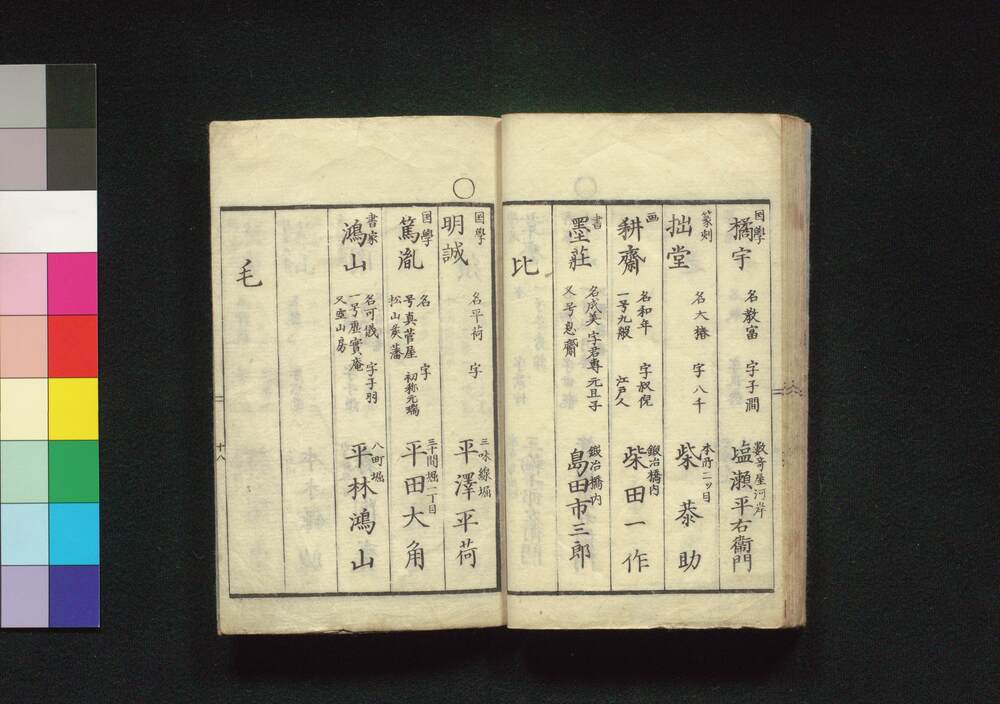 国學 橘宇 名敎富 字子澗 數寄屋河岸 塩瀬平右衞門
篆刻 拙堂 名大椿 字八千 本所二ッ目 柴恭助
画 耕齋 名和年 字叔倪 一号九皐 江戸人 鍛冶橋内 柴田一作
書 墨荘 名成美 字君専 元旦子 又号息齋 鍛冶橋内 島田市三郎
比
国學 明誠 名平荷 字 三味線堀 平澤平荷
国學 篤胤 名 字 号真菅屋 初称元瑞 松山矦藩 三十間堀二丁目 平田大角
書家 鴻山 名可儀 字子羽 一号虚實庵 又 山房 八町堀 平林鴻山
毛
十八